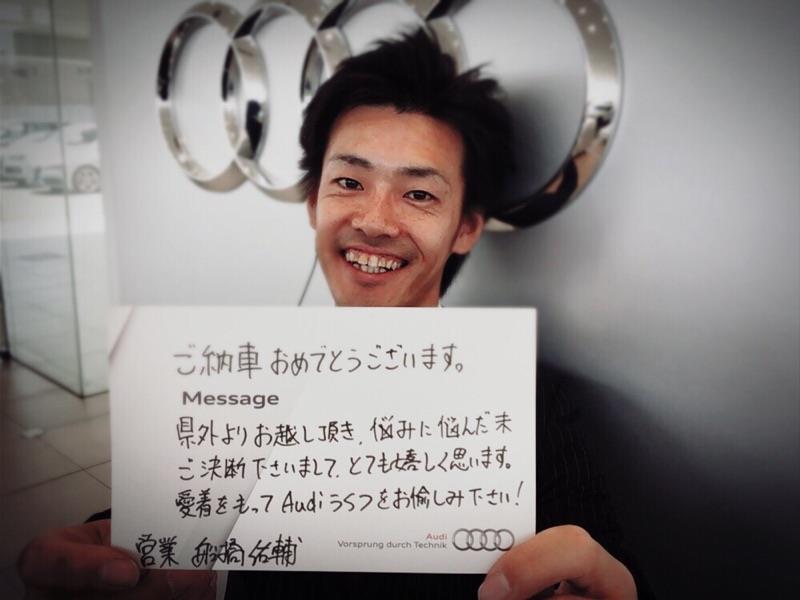 ご納車おめでとうございます。
Message
県外よりお越し頂き、悩みに悩んだ末
ご決断下さいまして、とても嬉しく思います。
愛着をもってAudiらいふをお愉しみ下さい!
営業 船橋佑輔
Audi
Vorsprung durch Technik